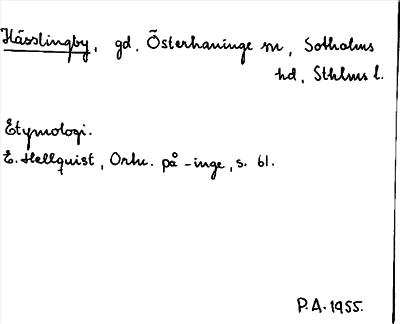 Hässlingby, gd. Österhaninge sn, Sotholms
hd, Sthlms l.
Etymologi.
E. Hellquist, Ortn. på -inge, s. 61.
P.A. 1955.